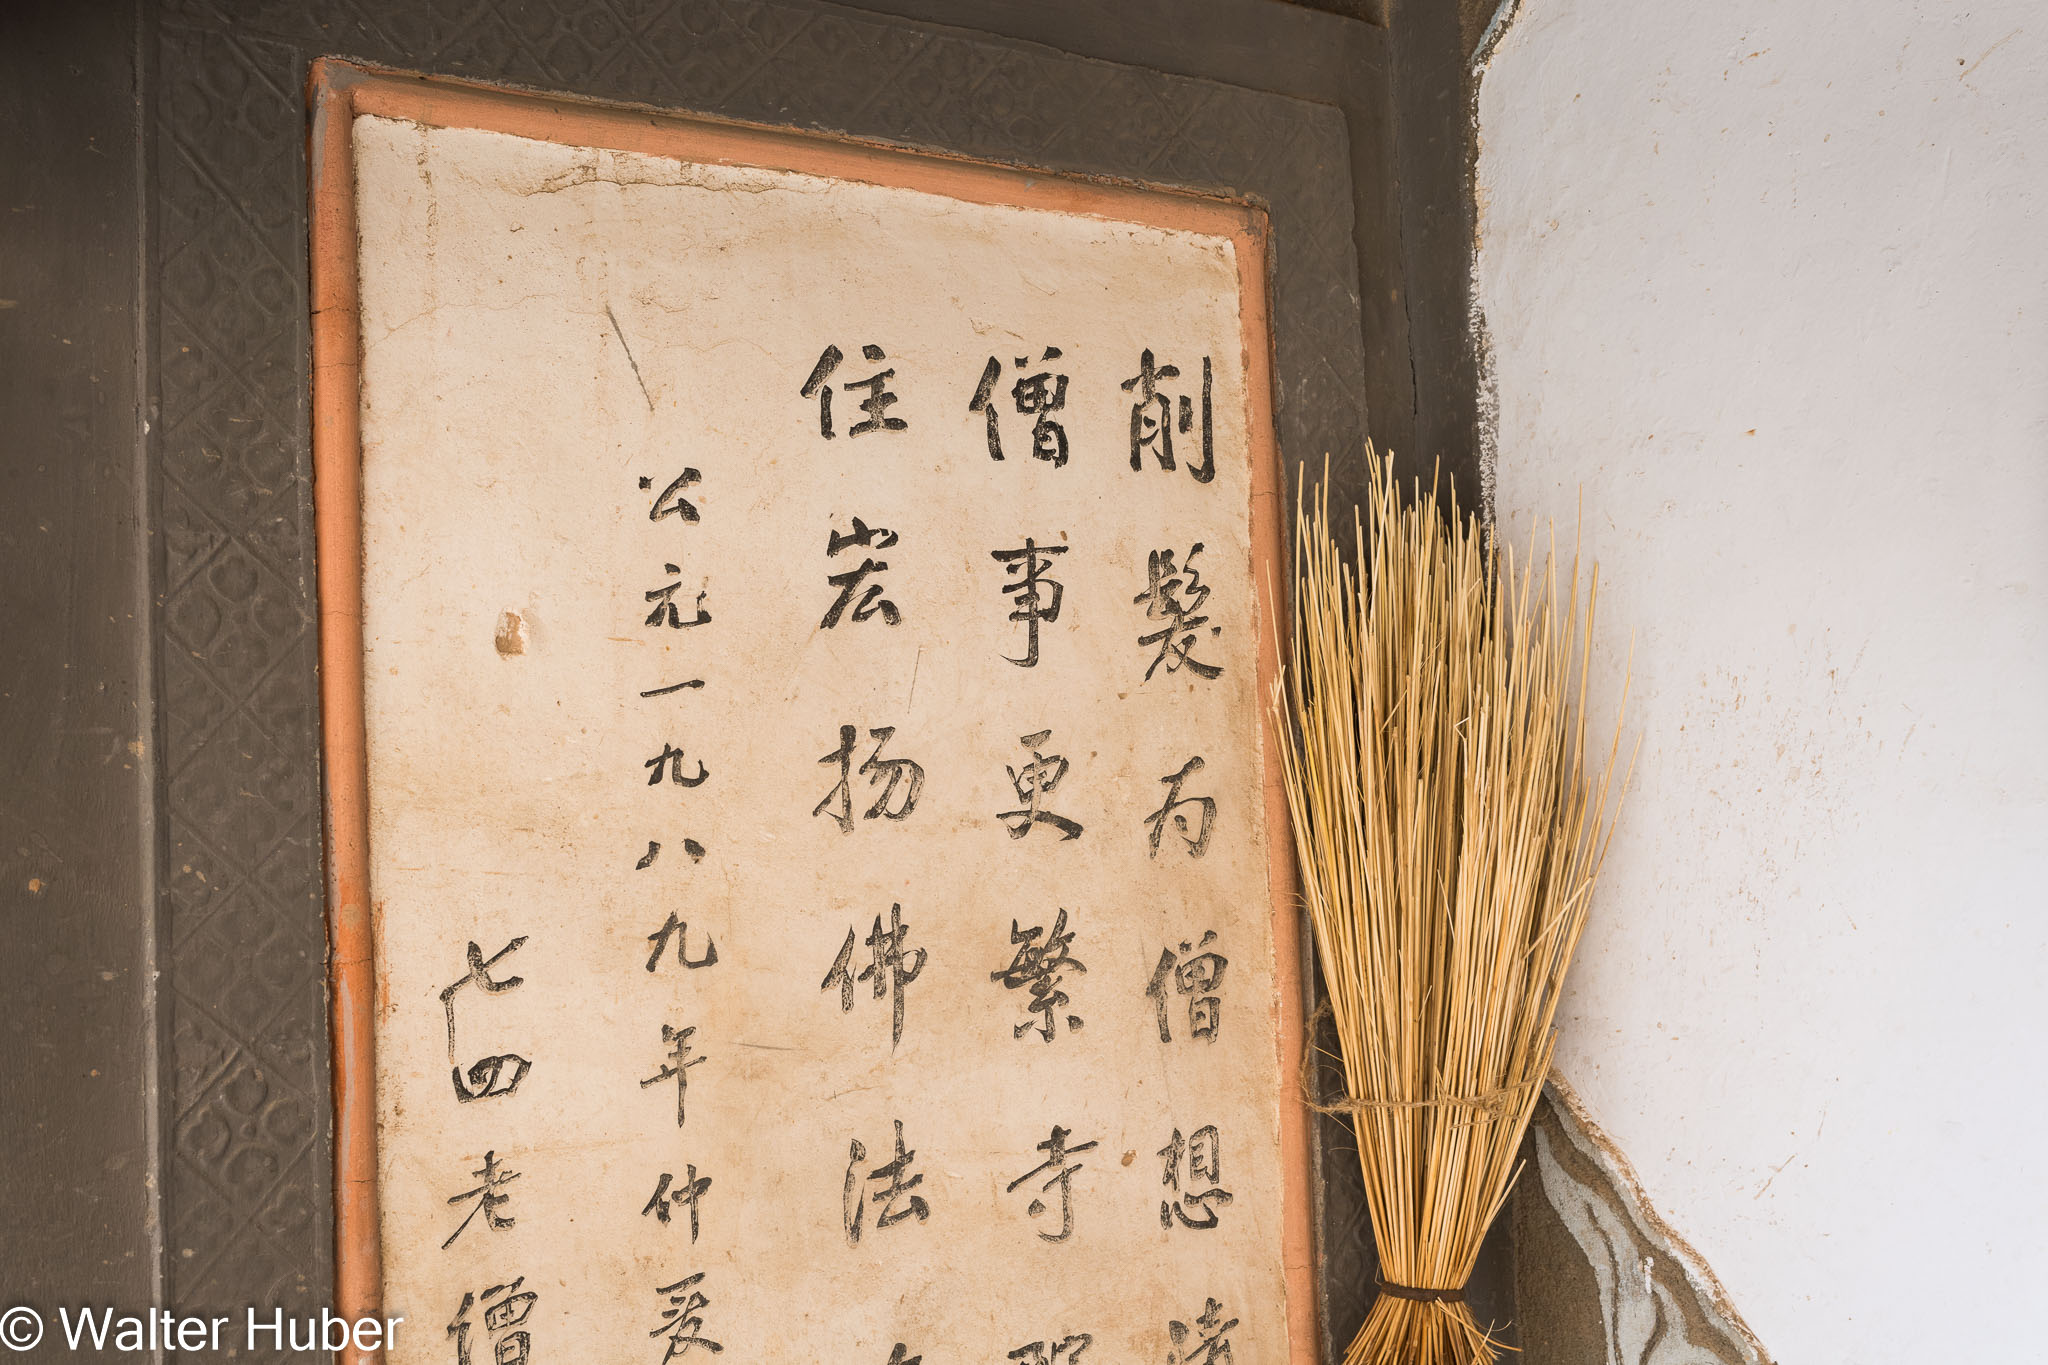 削髮為僧想清
僧事更繁寺
住宏扬佛法
公元一九八九年仲夏
七四老僧
© Walter Huber